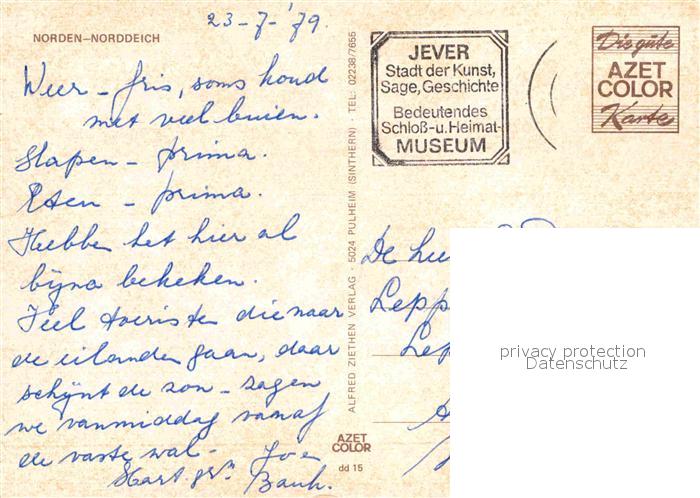 23-7-'79.
NORDEN-NORDDEICH
Weer - fris, soms koud
met veel buien.
Slapen - prima.
Eten - prima.
Hebben het hier al
bijna bekeken.
Veel toeristen die naar
de eilanden gaan, daar
schijnt de zon - zagen
we vanmiddag vanaf
de vaste wal-
Hart. grn
JEVER
Stadt der Kunst,
Sage, Geschichte
Bedeutendes
Schloß-u. Heimat-
MUSEUM
Die gute
AZET
COLOR
Karte
ALFRED ZIETHEN VERLAG · 5024 PULHEIM (SINTHERN) TEL: 02238/7656
De
Lepp
Lep
privacy protection
Datenschutz
AZET
COLOR
dd 15